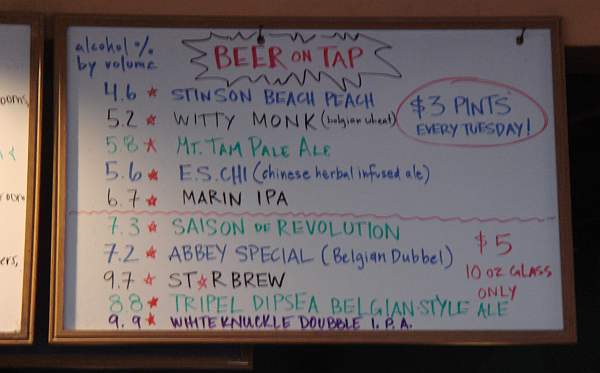 alcohol %
by volume
BEER ON TAP
4.6 ★ STINSON BEACH PEACH
5.2 ★ WITTY MONK (belgian wheat)
5.8 ★ MT. TAM PALE ALE
5.6 ★ E.S. CHI (chinese herbal infused ale)
6.7 ★ MARIN IPA
$3 PINTS
EVERY TUESDAY!
7.3 ★ SAISON DE REVOLUTION
7.2 ★ ABBEY SPECIAL (Belgian Dubbel)
9.7 ★ ST★R BREW
8.8 ★ TRIPEL DIPSEA BELGIAN-STYLE ALE
9.9 ★ WHITE KNUCKLE DOUBBLE I.P.A.
$5
10 OZ GLASS
ONLY